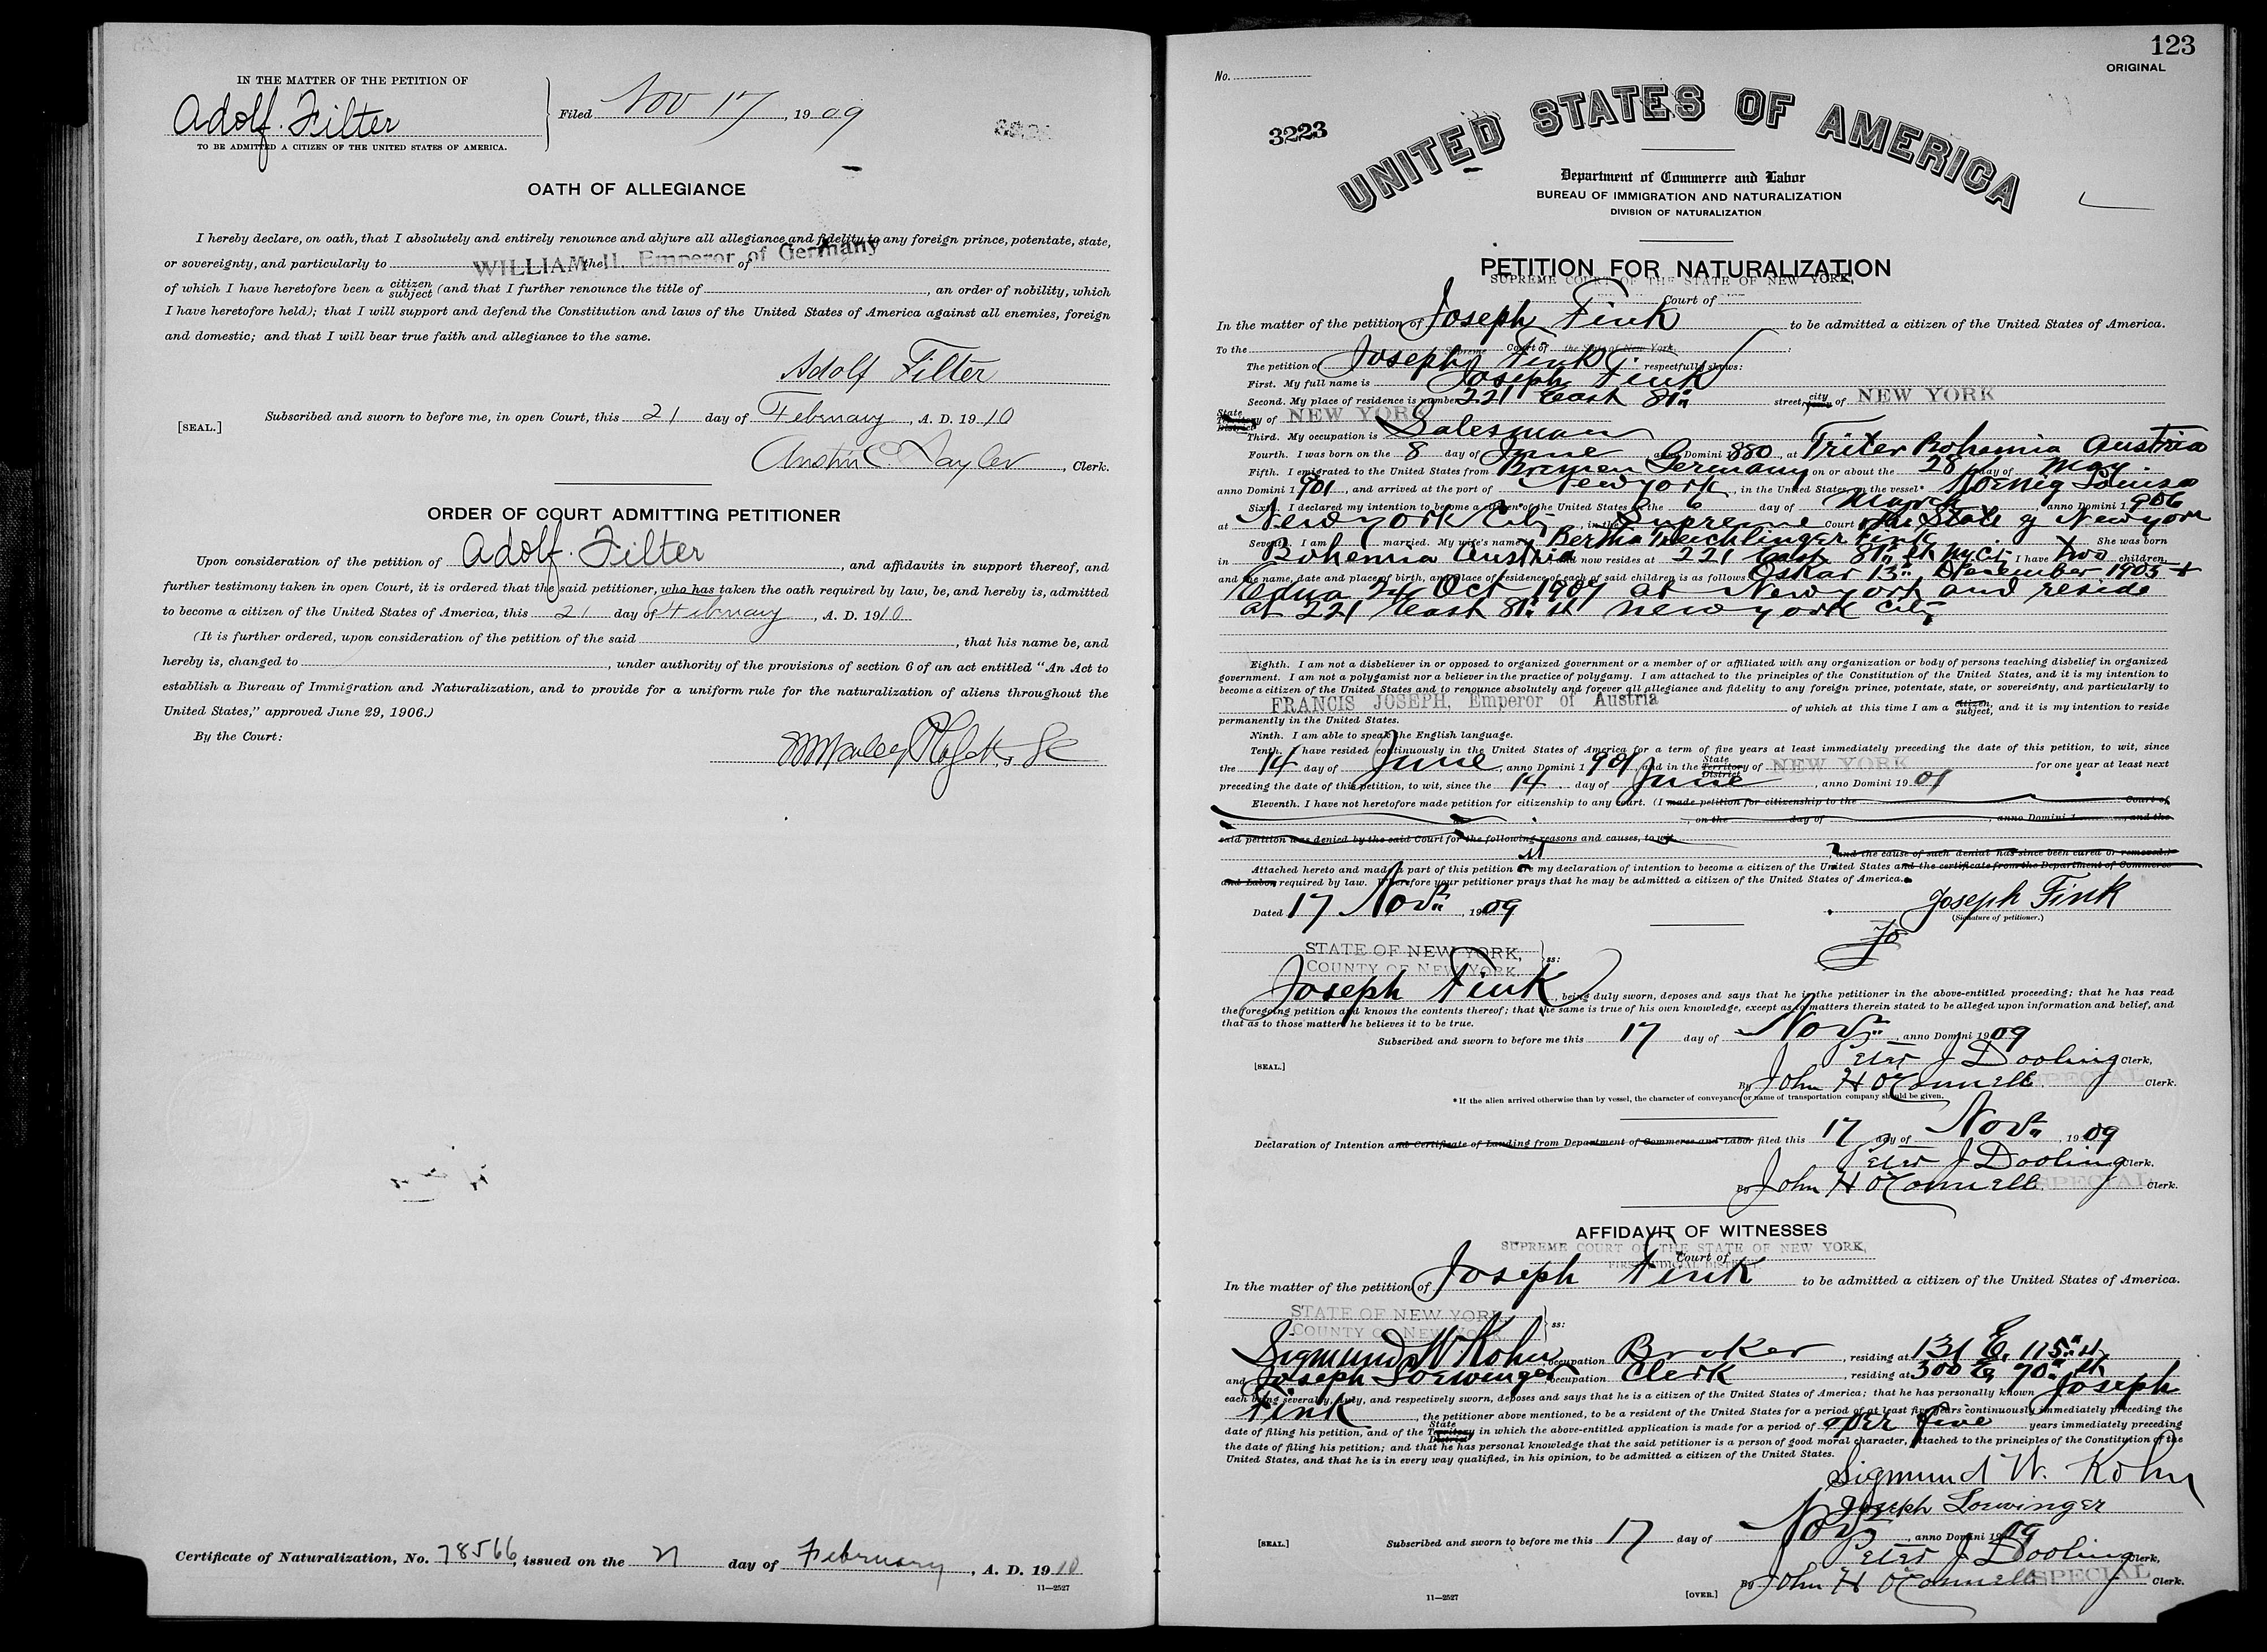 IN THE MATTER OF THE PETITION OF
Adolf Filter
Filed Nov 17, 1909
TO BE ADMITTED A CITIZEN OF THE UNITED STATES OF AMERICA.
OATH OF ALLEGIANCE
I hereby declare, on oath, that I absolutely and entirely renounce and abjure all allegiance and fidelity to any foreign prince, potentate, state,
or sovereignty, and particularly to WILLIAM II. the Emperor of of Germany
of which I have heretofore been a citizen subject (and that I further renounce the title of , an order of nobility, which
I have heretofore held); that I will support and defend the Constitution and laws of the United States of America against all enemies, foreign
and domestic; and that I will bear true faith and allegiance to the same.
Adolf Filter
Subscribed and sworn to before me, in open Court, this 21 day of February, A. D. 1910
[SEAL.]
, Clerk.
ORDER OF COURT ADMITTING PETITIONER
Upon consideration of the petition of Adolf Filter, and affidavits in support thereof, and
further testimony taken in open Court, it is ordered that the said petitioner, who has taken the oath required by law, be, and hereby is, admitted
to become a citizen of the United States of America, this 21 day of February, A. D. 1910
(It is further ordered, upon consideration of the petition of the said , that his name be, and
hereby is, changed to , under authority of the provisions of section 6 of an act entitled "An Act to
establish a Bureau of Immigration and Naturalization, and to provide for a uniform rule for the naturalization of aliens throughout the
United States," approved June 29, 1906.)
By the Court:
Certificate of Naturalization, No. 78566, issued on the 21 day of February, A. D. 1910
11—2527
123
ORIGINAL
No.
3223
UNITED STATES OF AMERICA
Department of Commerce and Labor
BUREAU OF IMMIGRATION AND NATURALIZATION
DIVISION OF NATURALIZATION
PETITION FOR NATURALIZATION
SUPREME COURT OF THE STATE OF NEW YORK,
Court of
In the matter of the petition of Joseph Fink to be admitted a citizen of the United States of America.
To the Supreme Court of the State of New York:
The petition of Joseph Fink respectfully shows:
First. My full name is Joseph Fink
Second. My place of residence is number 221 East 81st street, city town of NEW YORK
State Territory District of NEW YORK
Third. My occupation is Salesman
Fourth. I was born on the 8 day of June anno Domini 1880, at Triter Bohemia Austria
Fifth. I emigrated to the United States from Bremen Germany on or about the 28 day of May
anno Domini 1901, and arrived at the port of New York, in the United States, on the vessel* Koenig Louise
Sixth. I declared my intention to become a citizen of the United States on the 6 day of March anno Domini 1906
at New York City, in the Supreme Court of the State of New York
Seventh. I am married. My wife's name is Bertha Fink. She was born
in Bohemia Austria and now resides at 221 East 81st St NY City I have two children,
and the name, date and place of birth, and place of residence of each of said children is as follows: Oskar 13th December 1905 +
Edna 24 Oct 1907 at New York and reside
at 221 East 81st St New York City
Eighth. I am not a disbeliever in or opposed to organized government or a member of or affiliated with any organization or body of persons teaching disbelief in organized
government. I am not a polygamist nor a believer in the practice of polygamy. I am attached to the principles of the Constitution of the United States, and it is my intention to
become a citizen of the United States and to renounce absolutely and forever all allegiance and fidelity to any foreign prince, potentate, state, or sovereignty, and particularly to
FRANCIS JOSEPH, Emperor of Austria of which at this time I am a citizen subject, and it is my intention to reside
permanently in the United States.
Ninth. I am able to speak the English language.
Tenth. I have resided continuously in the United States of America for a term of five years at least immediately preceding the date of this petition, to wit, since
the 14 day of June, anno Domini 1901, and in the State Territory District of NEW YORK for one year at least next
preceding the date of this petition, to wit, since the 14 day of June, anno Domini 1901
Eleventh. I have not heretofore made petition for citizenship to any court. (I made petition for citizenship to the Court of
at , on the day of , anno Domini 1 , and the
said petition was denied by the said Court for the following reasons and causes, to wit,
, and the cause of such denial has since been cured or removed.)
Attached hereto and made a part of this petition are is my declaration of intention to become a citizen of the United States and the certificate from the Department of Commerce
and Labor required by law. Wherefore your petitioner prays that he may be admitted a citizen of the United States of America.
Dated 17 Novr, 1909
Joseph Fink
(Signature of petitioner.)
STATE OF NEW YORK,
COUNTY OF NEW YORK. ss:
Joseph Fink, being duly sworn, deposes and says that he is the petitioner in the above-entitled proceeding; that he has read
the foregoing petition and knows the contents thereof; that the same is true of his own knowledge, except as to matters therein stated to be alleged upon information and belief, and
that as to those matters he believes it to be true.
Subscribed and sworn to before me this 17 day of Novr, anno Domini 1909
Peter J Dooling Clerk,
[SEAL.]
By John H O'Connell SPECIAL Clerk.
*If the alien arrived otherwise than by vessel, the character of conveyance or name of transportation company should be given.
Declaration of Intention and Certificate of Landing from Department of Commerce and Labor filed this 17 day of Novr, 1909
Peter J Dooling Clerk.
By John H O'Connell SPECIAL Clerk.
AFFIDAVIT OF WITNESSES
SUPREME COURT OF THE STATE OF NEW YORK,
Court of
FIRST JUDICIAL DISTRICT.
In the matter of the petition of Joseph Fink to be admitted a citizen of the United States of America.
STATE OF NEW YORK,
COUNTY OF NEW YORK ss:
Sigmund W Kohn, occupation Broker, residing at 131 E. 115th St
and Joseph Loewinger, occupation Clerk, residing at 300 E 70th St
each being severally, duly, and respectively sworn, deposes and says that he is a citizen of the United States of America; that he has personally known Joseph
Fink, the petitioner above mentioned, to be a resident of the United States for a period of at least five years continuously immediately preceding the
date of filing his petition, and of the State Territory District in which the above-entitled application is made for a period of over five years immediately preceding
the date of filing his petition; and that he has personal knowledge that the said petitioner is a person of good moral character, attached to the principles of the Constitution of the
United States, and that he is in every way qualified, in his opinion, to be admitted a citizen of the United States.
Sigmund W. Kohn
Joseph Loewinger
[SEAL.] Subscribed and sworn to before me this 17 day of Novr, anno Domini 1909
Peter J Dooling Clerk,
By John H O'Connell SPECIAL Clerk.
11—2527
[OVER.]